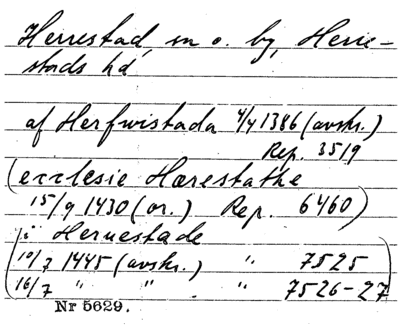 Herrestad, sn o. by, Herre-
stads hd
af Herfwistada 4/4 1386 (avskr.)
Rep. 3519
(ecclesie Hærestathe
15/9 1430 (or.) Rep. 6460)
(i Heruestade
10/7 1445 (avskr.) " 7525
16/7 " " " 7526-27)
Nr 5629.